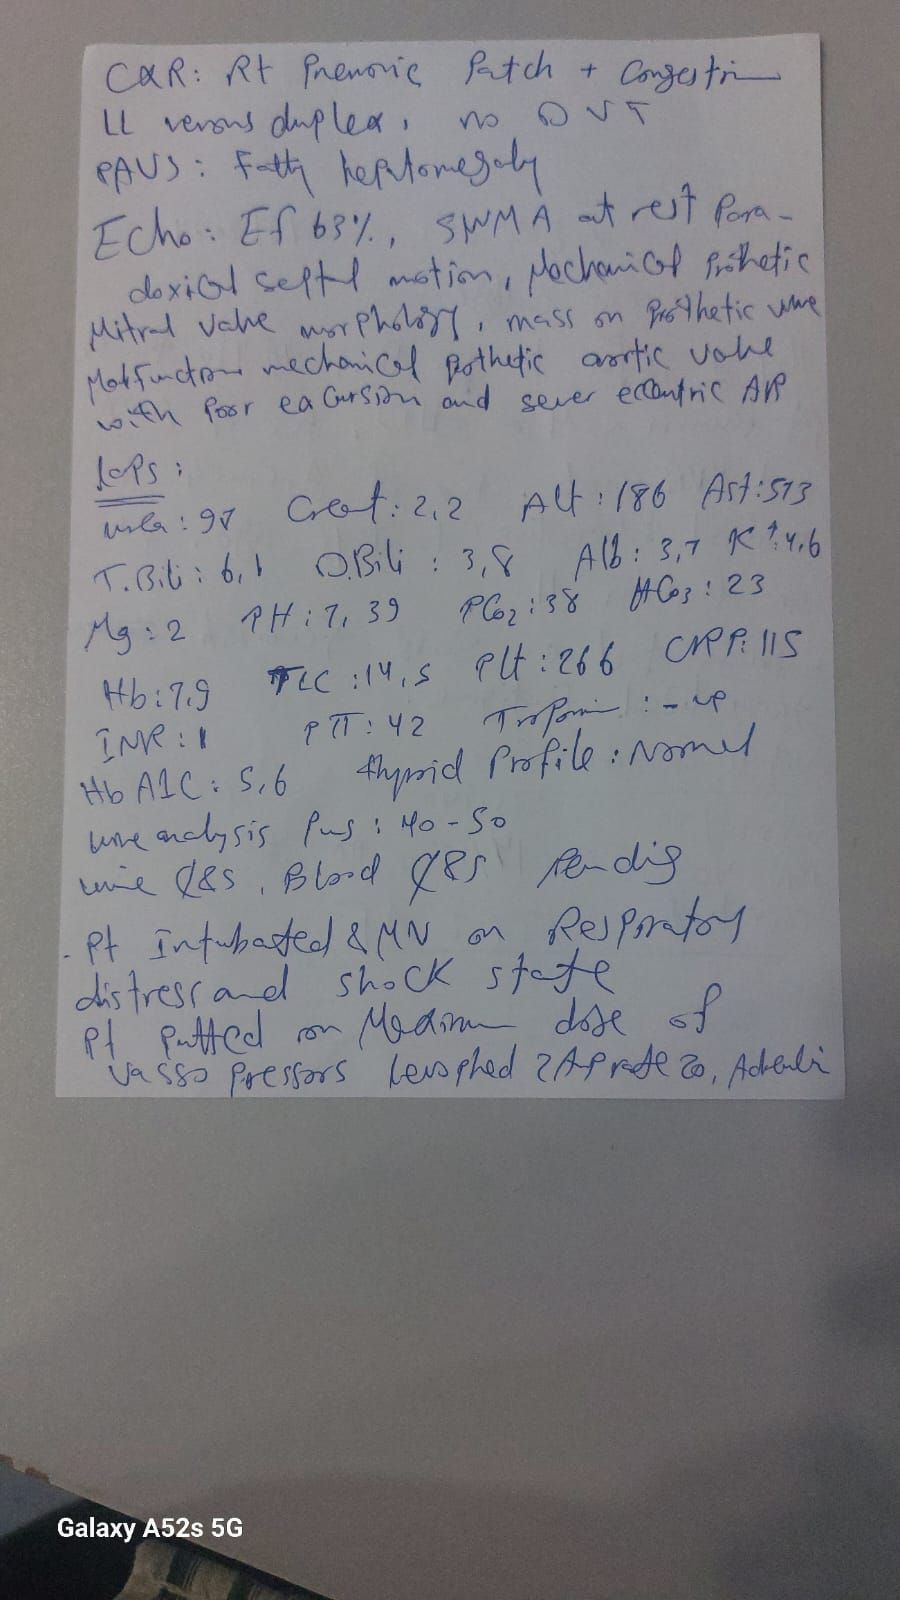 CXR: Rt Pnemonic Patch + Congestion
LL venous duplex, no DVT
PAUS: Fatty hepatomegaly
Echo: EF 63%, SWMA at rest Para-
doxical septal motion, Mechanical Prothetic
Mitral Valve morphology, mass on Prothetic
Malfunction mechanical Prothetic aortic valve
with Poor excursion and sever eccentric AR
Labs:
urea: 97 Creat: 2,2 Alt: 186 Ast: 573
T.Bili: 6,1 D.Bili: 3,8 Alb: 3,7 K: 4,6
Mg: 2 PH: 7,39 PCo2: 38 HCo3: 23
Hb: 7,9 TLC: 14,5 Plt: 266 CRP: 115
INR: 1 PTT: 42 Troponin: - ve
Hb A1C: 5,6 thyroid Profile: Normal
urine analysis Pus: 40-50
urine C&S, Blood C&S Pendig
- Pt Intubated & MV on Respiratory
distress and shock state
Pt Putted on dose of
Vasso Pressors Levophed rate 20,
Galaxy A52s 5G